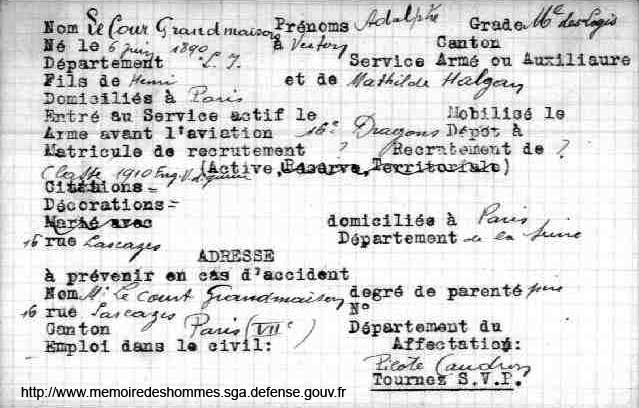 Nom Le Cour Grandmaison Prénoms Adolphe Grade Mal des Logis
Né le 6 juin 1890 à Vertou Canton
Département L. I. Service Armé ou Auxiliaure
Fils de Henri et de Mathilde Halgan
Domiciliés à Paris
Entré au Service actif le Mobilisé le
Arme avant l'aviation 16e Dragons Dépôt à
Matricule de recrutement ? Recrutement de ?
(Active, Réserve, Territoriale)
Classe 1910 Eng. V.
Citations=
Décorations=
Marié avec domiciliés à Paris
16 rue Lascazes Département de la Seine
ADRESSE
à prévenir en cas d'accident
Nom Mr Le Court Grandmaison degré de parenté père
16 rue Lascazes N°
Canton Paris (VIIe) Département du
Emploi dans le civil: Affectation:
Pilote Caudron
Tournez S.V.P.
http://www.memoiredeshommes.sga.defense.gouv.fr